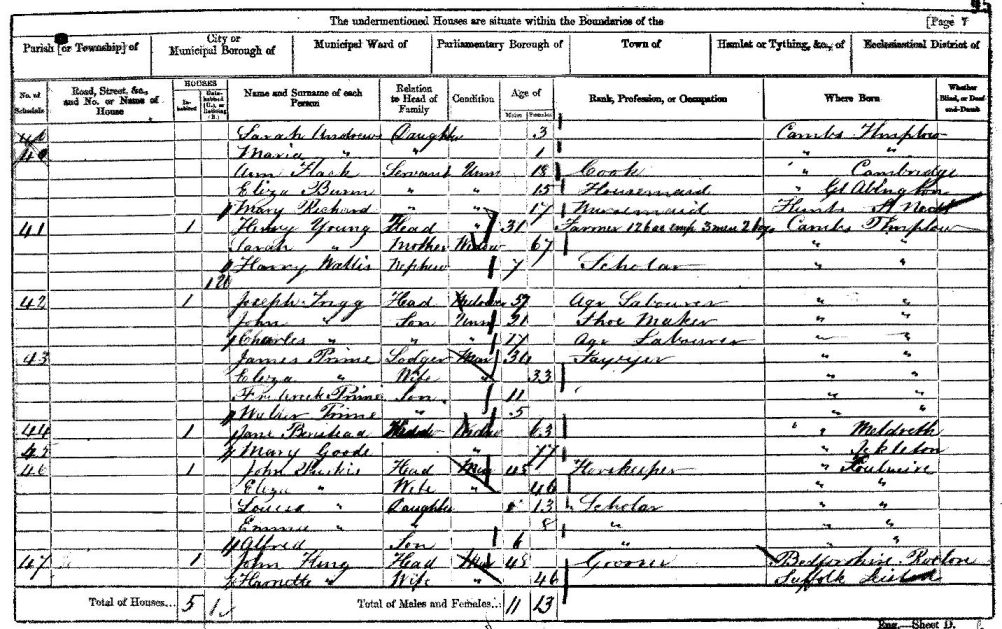 95
The undermentioned Houses are situate within the Boundaries of the [Page
Parish [or Township] of City or Municipal Borough of Municipal Ward of Parliamentary Borough of Town of Hamlet or Tything, &c., of Ecclesiastical District of
No. of Schedule Road, Street, &c., and No. or Name of House HOUSES Inhabited Uninhabited (U.), or Building (B.) Name and Surname of each Person Relation to Head of Family Condition Age of Males Females Rank, Profession, or Occupation Where Born Whether Blind, or Deaf-and-Dumb
40 Sarah Andrews Daughter 3 Cambs Thriplow
Maria " " 1 " "
Ann Flack Servant Unm 18 Cook " Cambridge
Eliza Burm " " 15 Housemaid " Gt Abington
Mary Richard " " 17 Nursemaid Hunts St Neots
41 1 Henry Young Head " 31 Farmer 126 ac emp 3 men 2 boys Cambs Thriplow
Sarah " Mother Widow 67 " "
Harry Wallis Nephew 7 Scholar " "
42 1 Joseph Trigg Head Widower 57 Agr Labourer " "
John " Son Unm 21 Shoe Maker " "
Charles " " " 17 Agr Labourer " "
43 James Prime Lodger Mar 30 " "
Eliza " Wife " 33 " "
Frederick Prime Son 11 " "
Walter Prime " 5 " "
44 1 Jane Benstead Head Widow 63 " Meldreth
45 Mary Goode 77 " Ickleton
46 1 John Head Mar 45 Horsekeeper " Foulmire
Eliza " Wife " 46 " "
Louisa " Daughter 13 Scholar " "
Emma " " 8 " " "
Alfred Son 6 " " "
47 1 John King Head Mar 48 Groom Bedfordshire
Harriette " Wife " 46 Suffolk
Total of Houses... 5 1 Total of Males and Females... 11 13
Eng.—Sheet D.